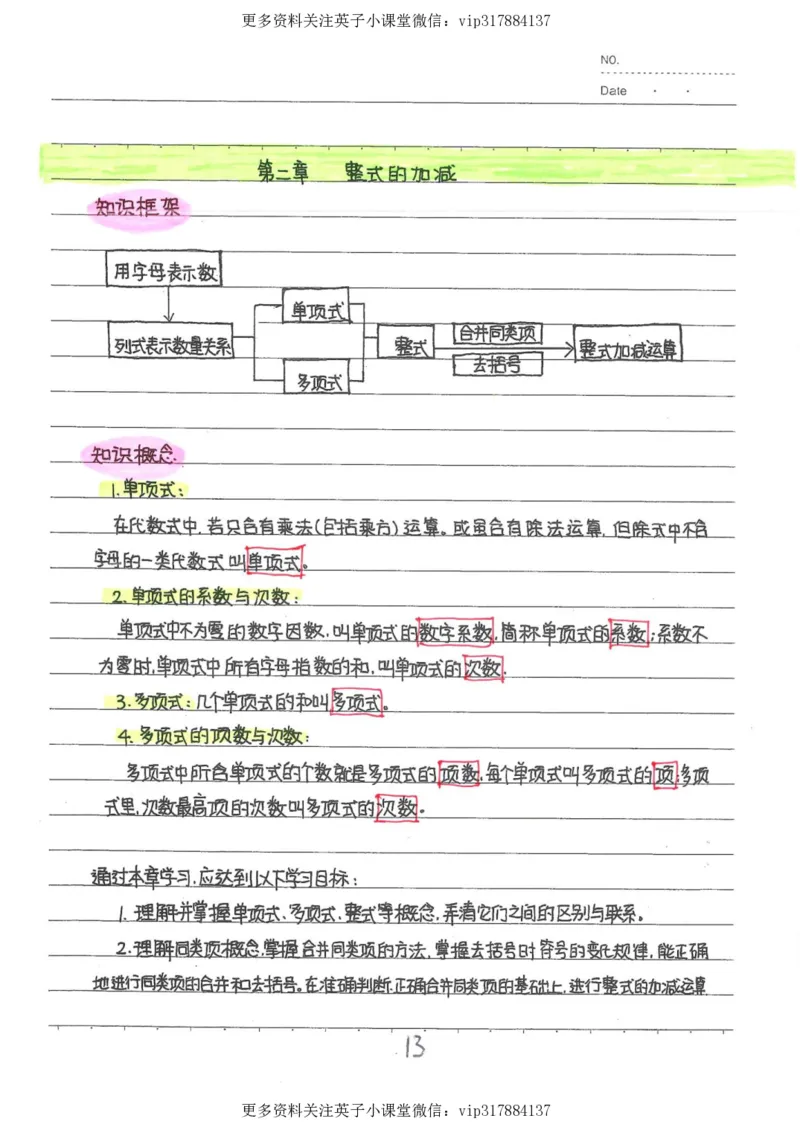 更多资料关注英子小课堂微信：vip317884137
NO.
Date
第二章 整式的加减
知识框架
用字母表示数
单项式
列式表示数量关系
整式
合并同类项
去括号
整式加减运算
多项式
知识概念
1.单项式：
在代数式中,若只含有乘法(包括乘方)运算。或虽含有除法运算,但除式中不含
字母的一类代数式叫单项式。
2.单项式的系数与次数：
单项式中不为零的数字因数,叫单项式的数字系数,简称单项式的系数;系数不
为零时,单项式中所有字母指数的和,叫单项式的次数.
3.多项式:几个单项式的和叫多项式。
4.多项式的项数与次数：
多项式中所含单项式的个数就是多项式的项数,每个单项式叫多项式的项;多项
式里,次数最高项的次数叫多项式的次数。
通过本章学习,应达到以下学习目标：
1.理解并掌握单项式、多项式、整式等概念,弄清它们之间的区别与联系。
2.理解同类项概念,掌握合并同类项的方法,掌握去括号时符号的变化规律,能正确
地进行同类项的合并和去括号。在准确判断,正确合并同类项的基础上,进行整式的加减运算
13
更多资料关注英子小课堂微信：vip317884137